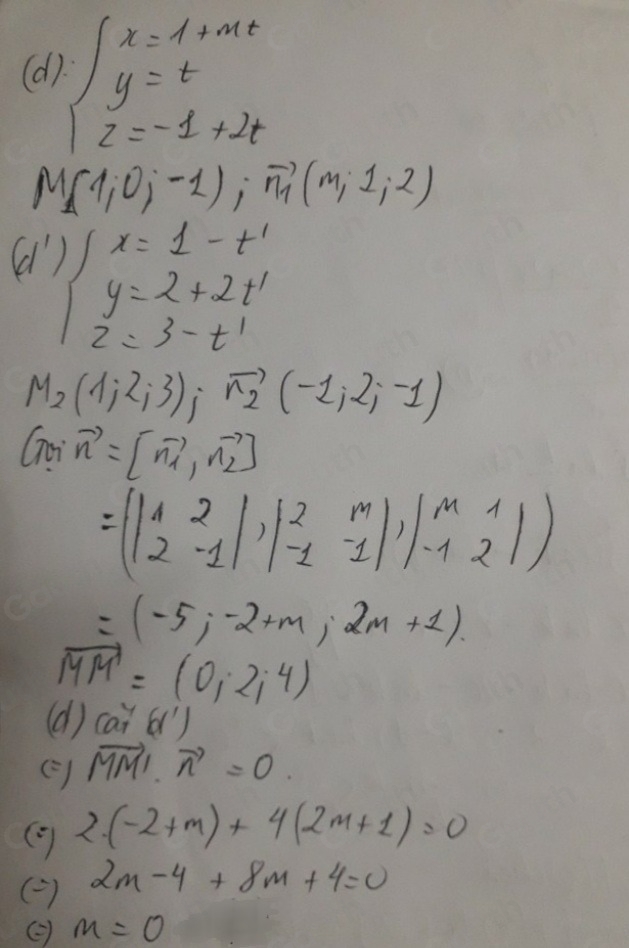 (d): { x = 1 + mt
y = t
z = -1 + 2t
M₁(1;0;-1); n₁→(m;1;2)
(d') { x = 1 - t'
y = 2 + 2t'
z = 3 - t'
M₂(1;2;3); n₂→(-1;2;-1)
Gọi n→ = [n₁→, n₂→]
= (|1 2; 2 -1|, |2 m; -1 -1|, |m 1; -1 2|)
= (-5; -2+m; 2m+1).
MM'→ = (0;2;4)
(d) cắt (d')
(=) MM'→ . n→ = 0.
(=) 2.(-2+m) + 4(2m+1) = 0
(=) 2m - 4 + 8m + 4 = 0
(=) m = 0